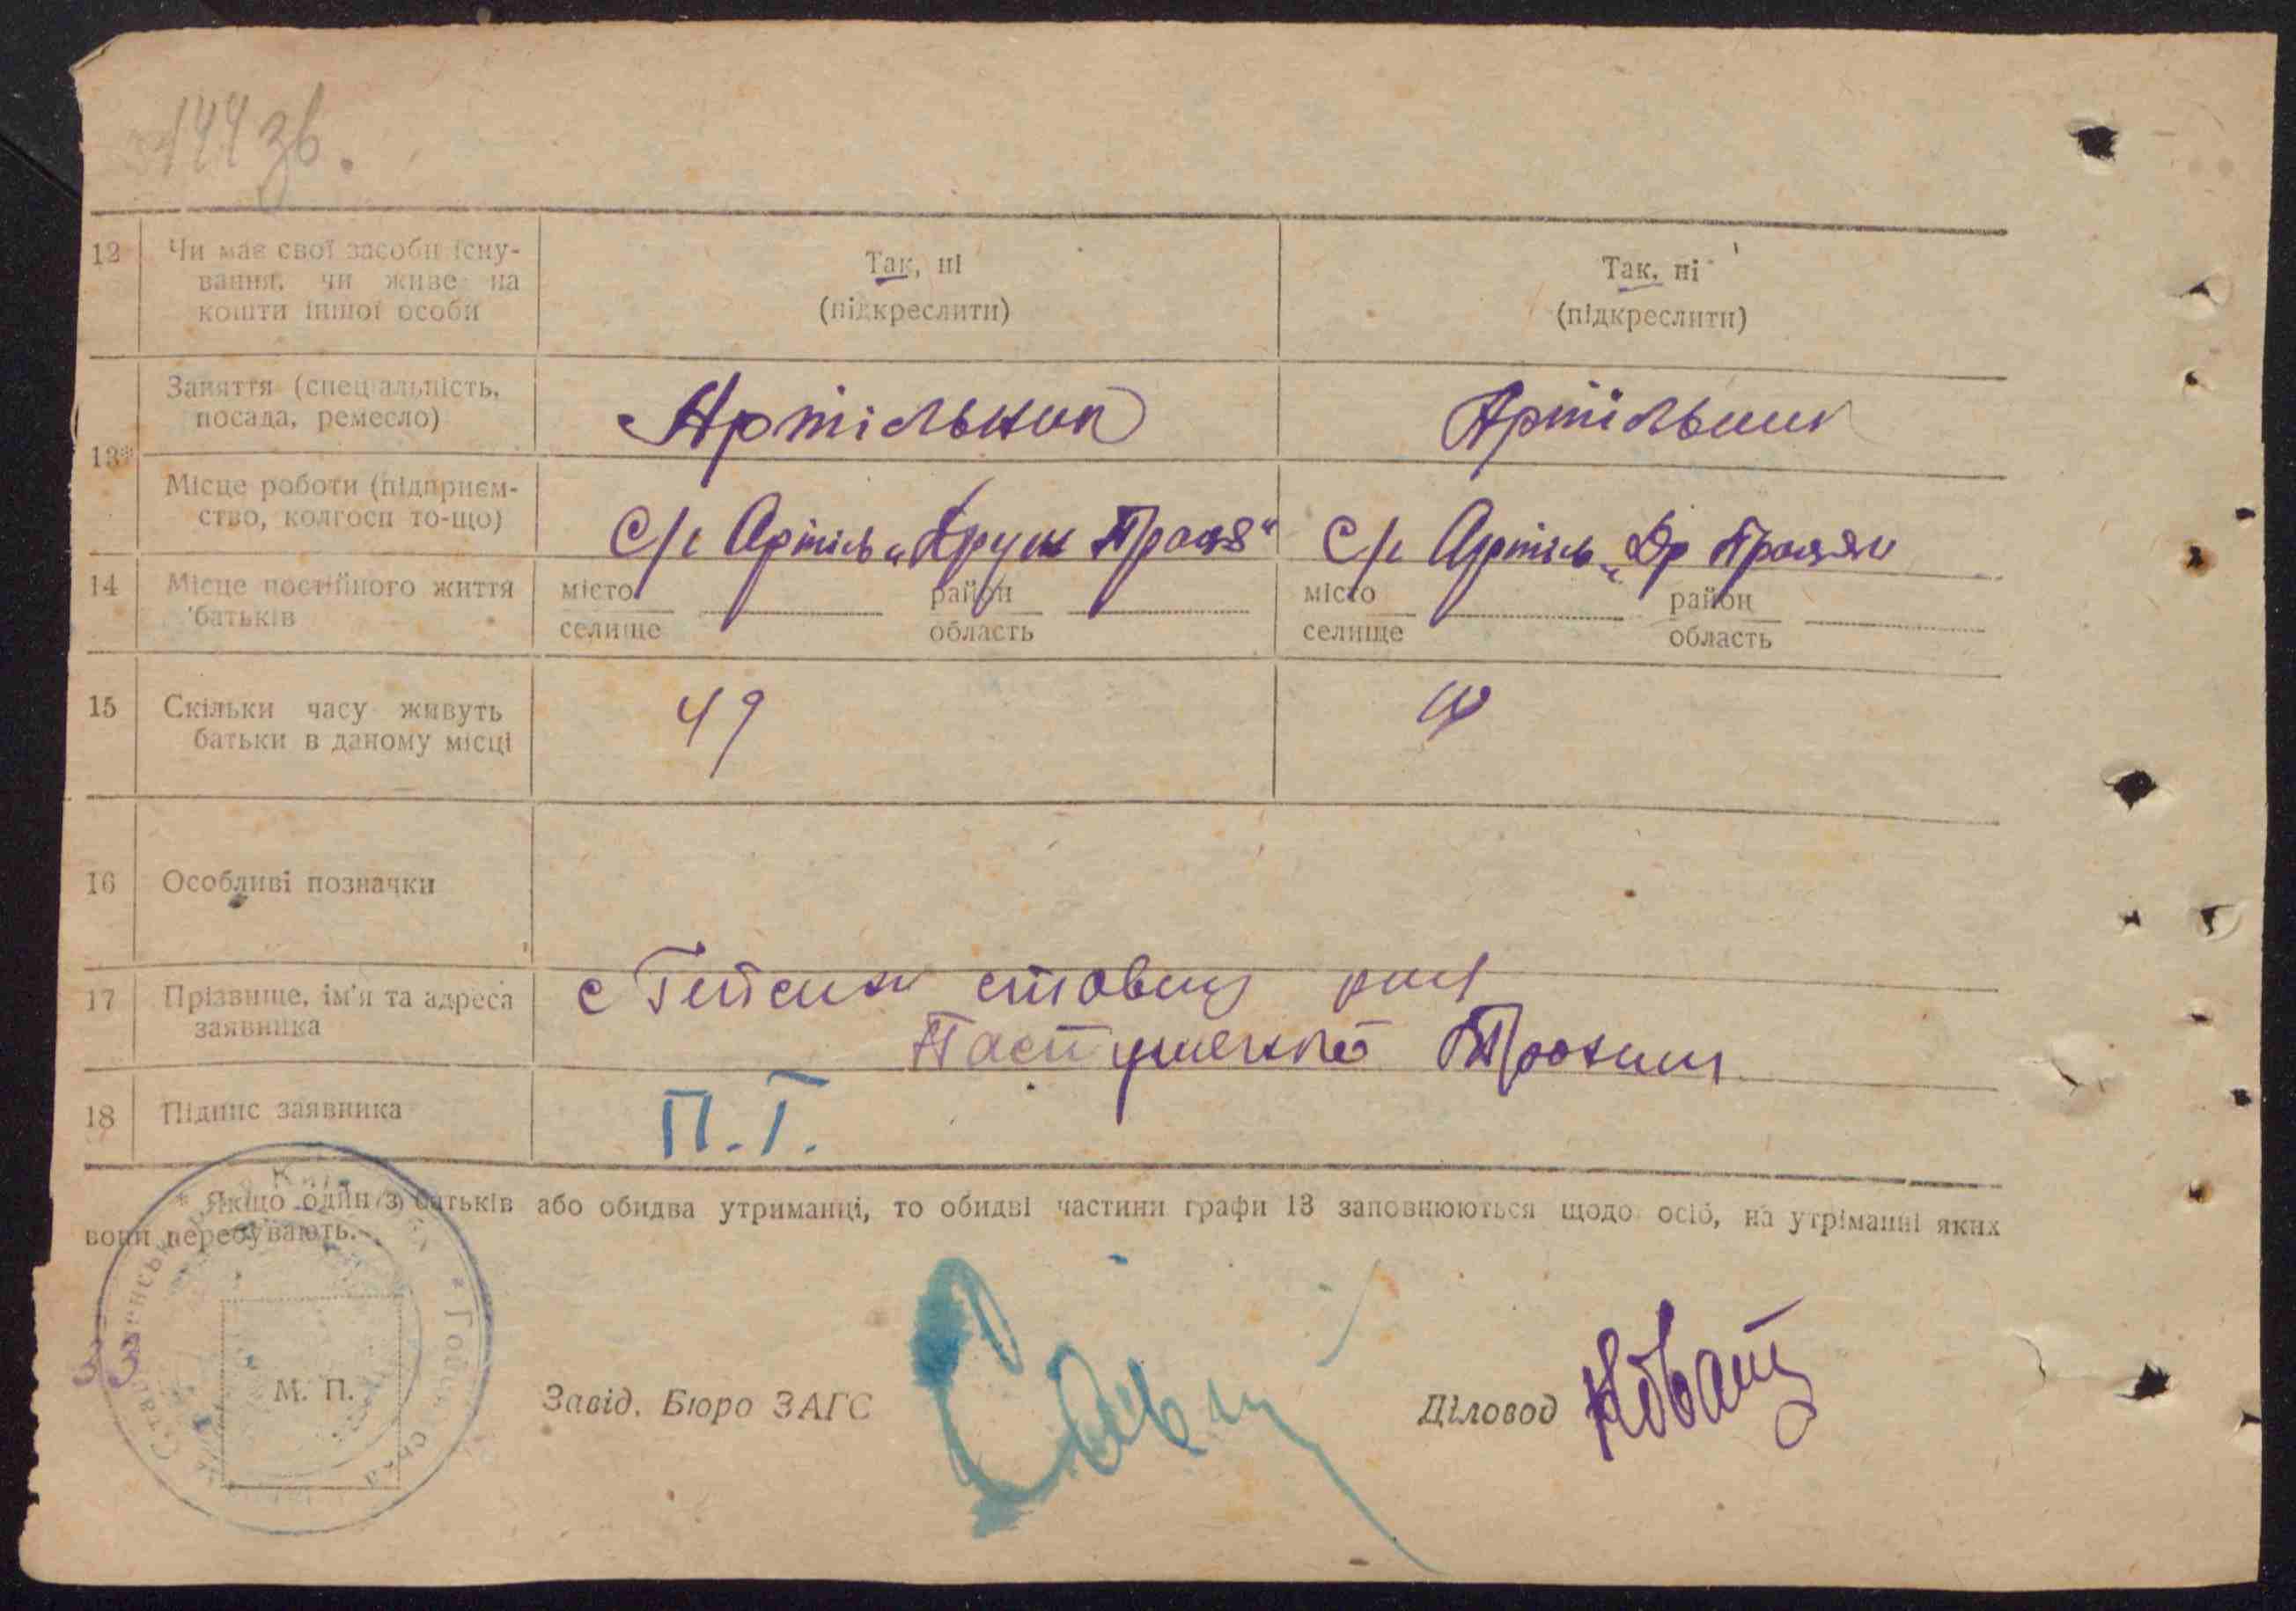 144 зв.
12 Чи має свої засоби існу- Так, ні Так, ні
вання, чи живе на
кошти іншої особи (підкреслити) (підкреслити)
Заняття (спеціальність,
посада, ремесло) Артільник Артільник
13*
Місце роботи (підприєм-
ство, колгосп то-що) С/г Артіль „Друж Праця“ С/г Артіль „Др Праця“
14 Місце постійного життя місто район місто район
батьків селище область селище область
15 Скільки часу живуть 49
батьки в даному місці
16 Особливі позначки
17 Прізвище, ім'я та адреса с
заявника Трохим
18 Підпис заявника П.Т.
Якщо один з батьків або обидва утриманці, то обидві частини графи 13 заповнюються щодо осіб, на утріманні яких
вони перебувають.
М. П. Завід. Бюро ЗАГС Діловод